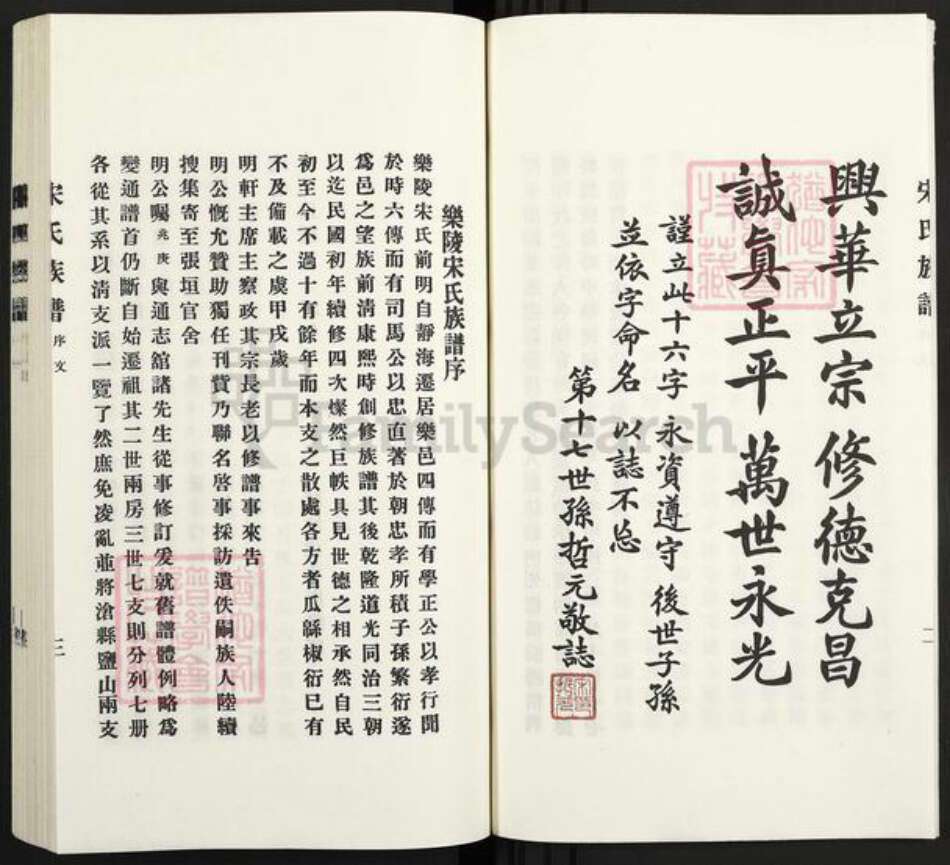 宋氏族譜
二
興華立宗 修德克昌
誠眞正平 萬世永光
謹立此十六字永資遵守後世子孫
並依字命名以誌不忘
第十七世孫哲元敬誌
樂陵宋氏族譜序
樂陵宋氏前明自靜海遷居樂邑四傳而有學正公以孝行聞
於時六傳而有司馬公以忠直著於朝忠孝所積子孫繁衍遂
爲邑之望族前淸康熙時創修族譜其後乾隆道光同治三朝
以迄民國初年續修四次燦然巨帙具見世德之相承然自民
初至今不過十有餘年而本支之散處各方者瓜緜椒衍已有
不及備載之虞甲戌歲
明軒主席主察政其宗長老以修譜事來吿
明公慨允贊助獨任刊貲乃聯名啓事採訪遺佚嗣族人陸續
搜集寄至張垣官舍
明公囑兆庚與通志舘諸先生從事修訂爰就舊譜體例略爲
變通譜首仍斷自始遷祖其二世兩房三世七支則分列七册
各從其系以淸支派一覽了然庶免凌亂並將滄縣鹽山兩支
宋氏族譜 序文
三
FamilySearch